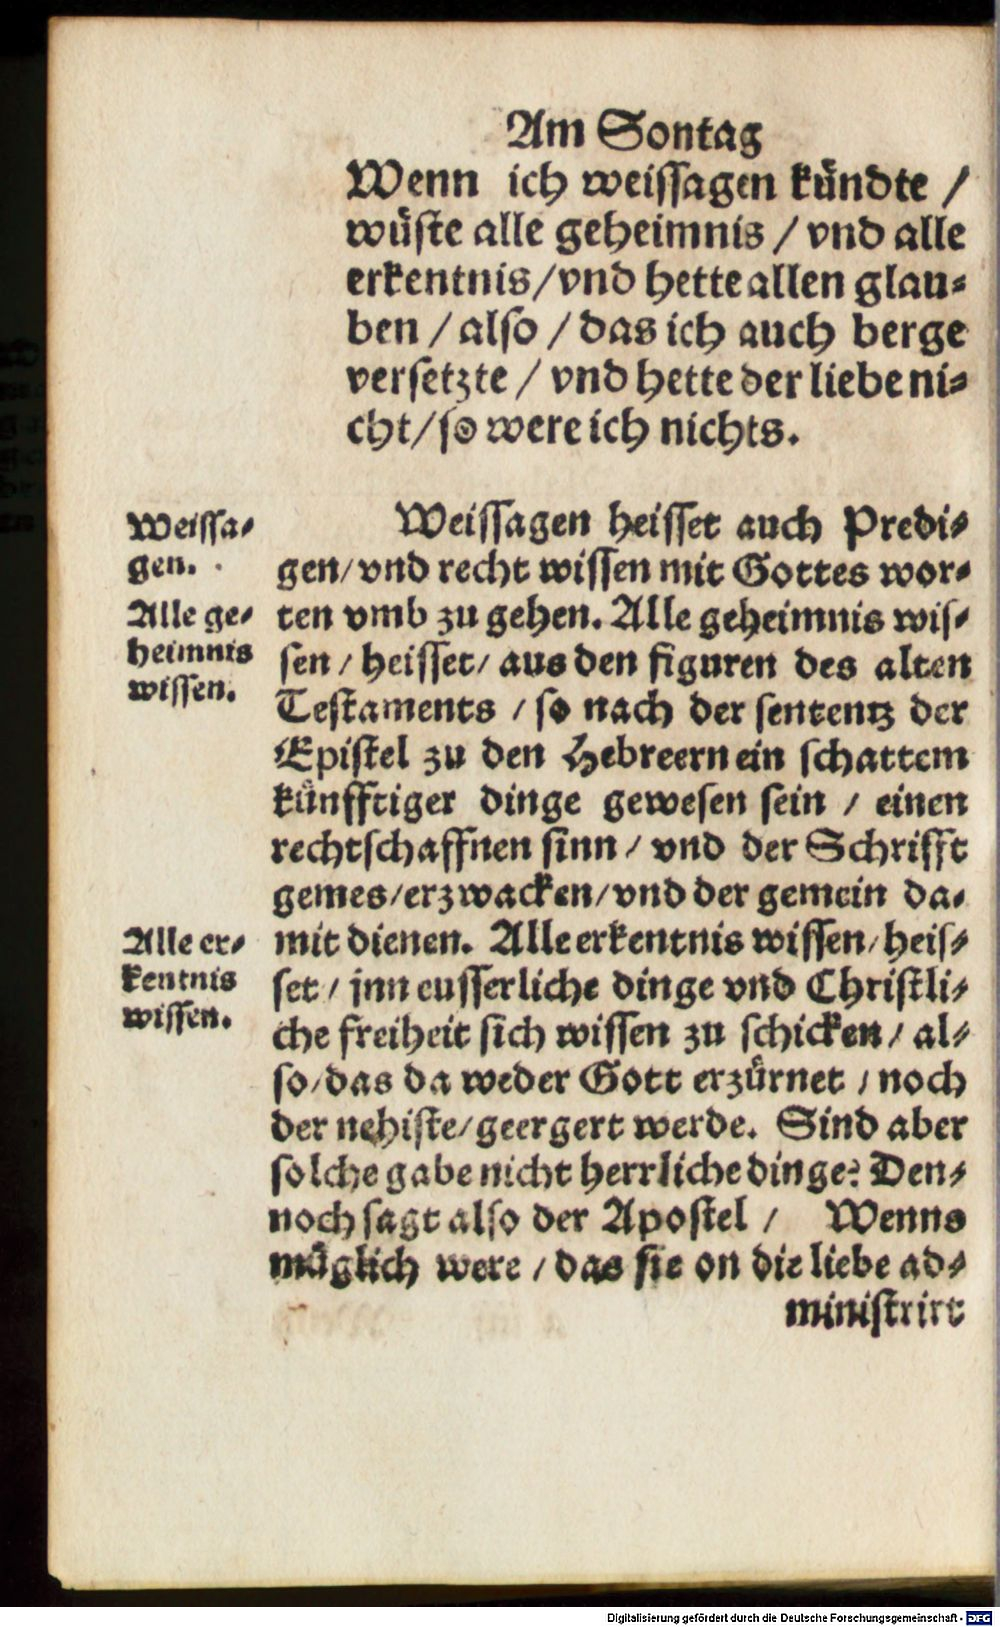 Am Sontag
Wenn ich weissagen kündte /
wüste alle geheimnis / vnd alle
erkentnis / vnd hette allen glau-
ben / also / das ich auch berge
versetzte / vnd hette der liebe ni-
cht / so were ich nichts.
Weissa-
gen.
Alle ge-
heimnis
wissen.
Weissagen heisset auch Predi-
gen / vnd recht wissen mit Gottes wor-
ten vmb zu gehen. Alle geheimnis wis-
sen / heisset / aus den figuren des alten
Testaments / so nach der sententz der
Epistel zu den Hebreern ein schattem
künfftiger dinge gewesen sein / einen
rechtschaffnen sinn / vnd der Schrifft
gemes / erzwacken / vnd der gemein da-
mit dienen. Alle erkentnis wissen / heis-
set / jnn eusserliche dinge vnd Christli-
che freiheit sich wissen zu schicken / al-
so / das da weder Gott erzürnet / noch
der nehiste / geergert werde. Sind aber
solche gabe nicht herrliche dinge? Den-
noch sagt also der Apostel / Wenns
müglich were / das sie on die liebe ad-
ministrirt
Alle er-
kentnis
wissen.
Digitalisierung gefördert durch die Deutsche Forschungsgemeinschaft - DFG